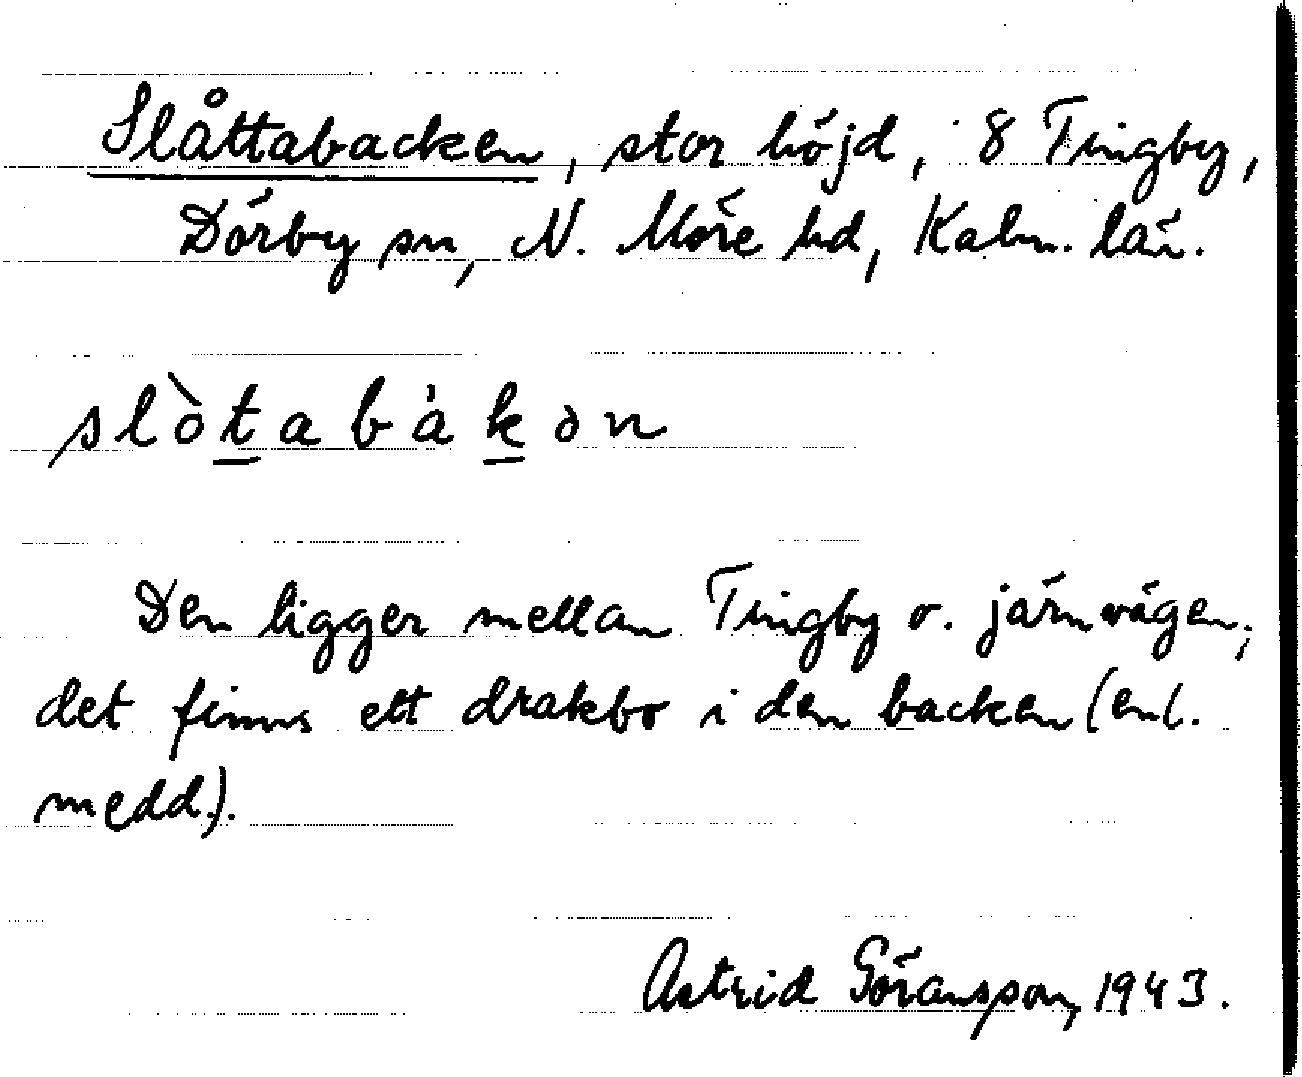 Slåttabacken, stor höjd, 8 Tingby,
Dörby sn, N. Möre hd, Kalm. län.
slòtabàkən
Den ligger mellan Tingby o. järnvägen,
det finns ett drakbo i den backen (enl.
medd.).
Astrid Göransson, 1943.